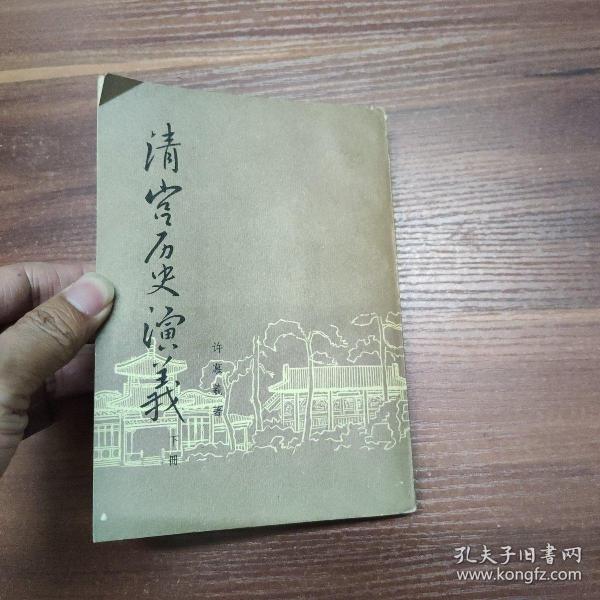 清宫历史演義
下册
许慕羲著
孔夫子旧書网
www.kongfz.com